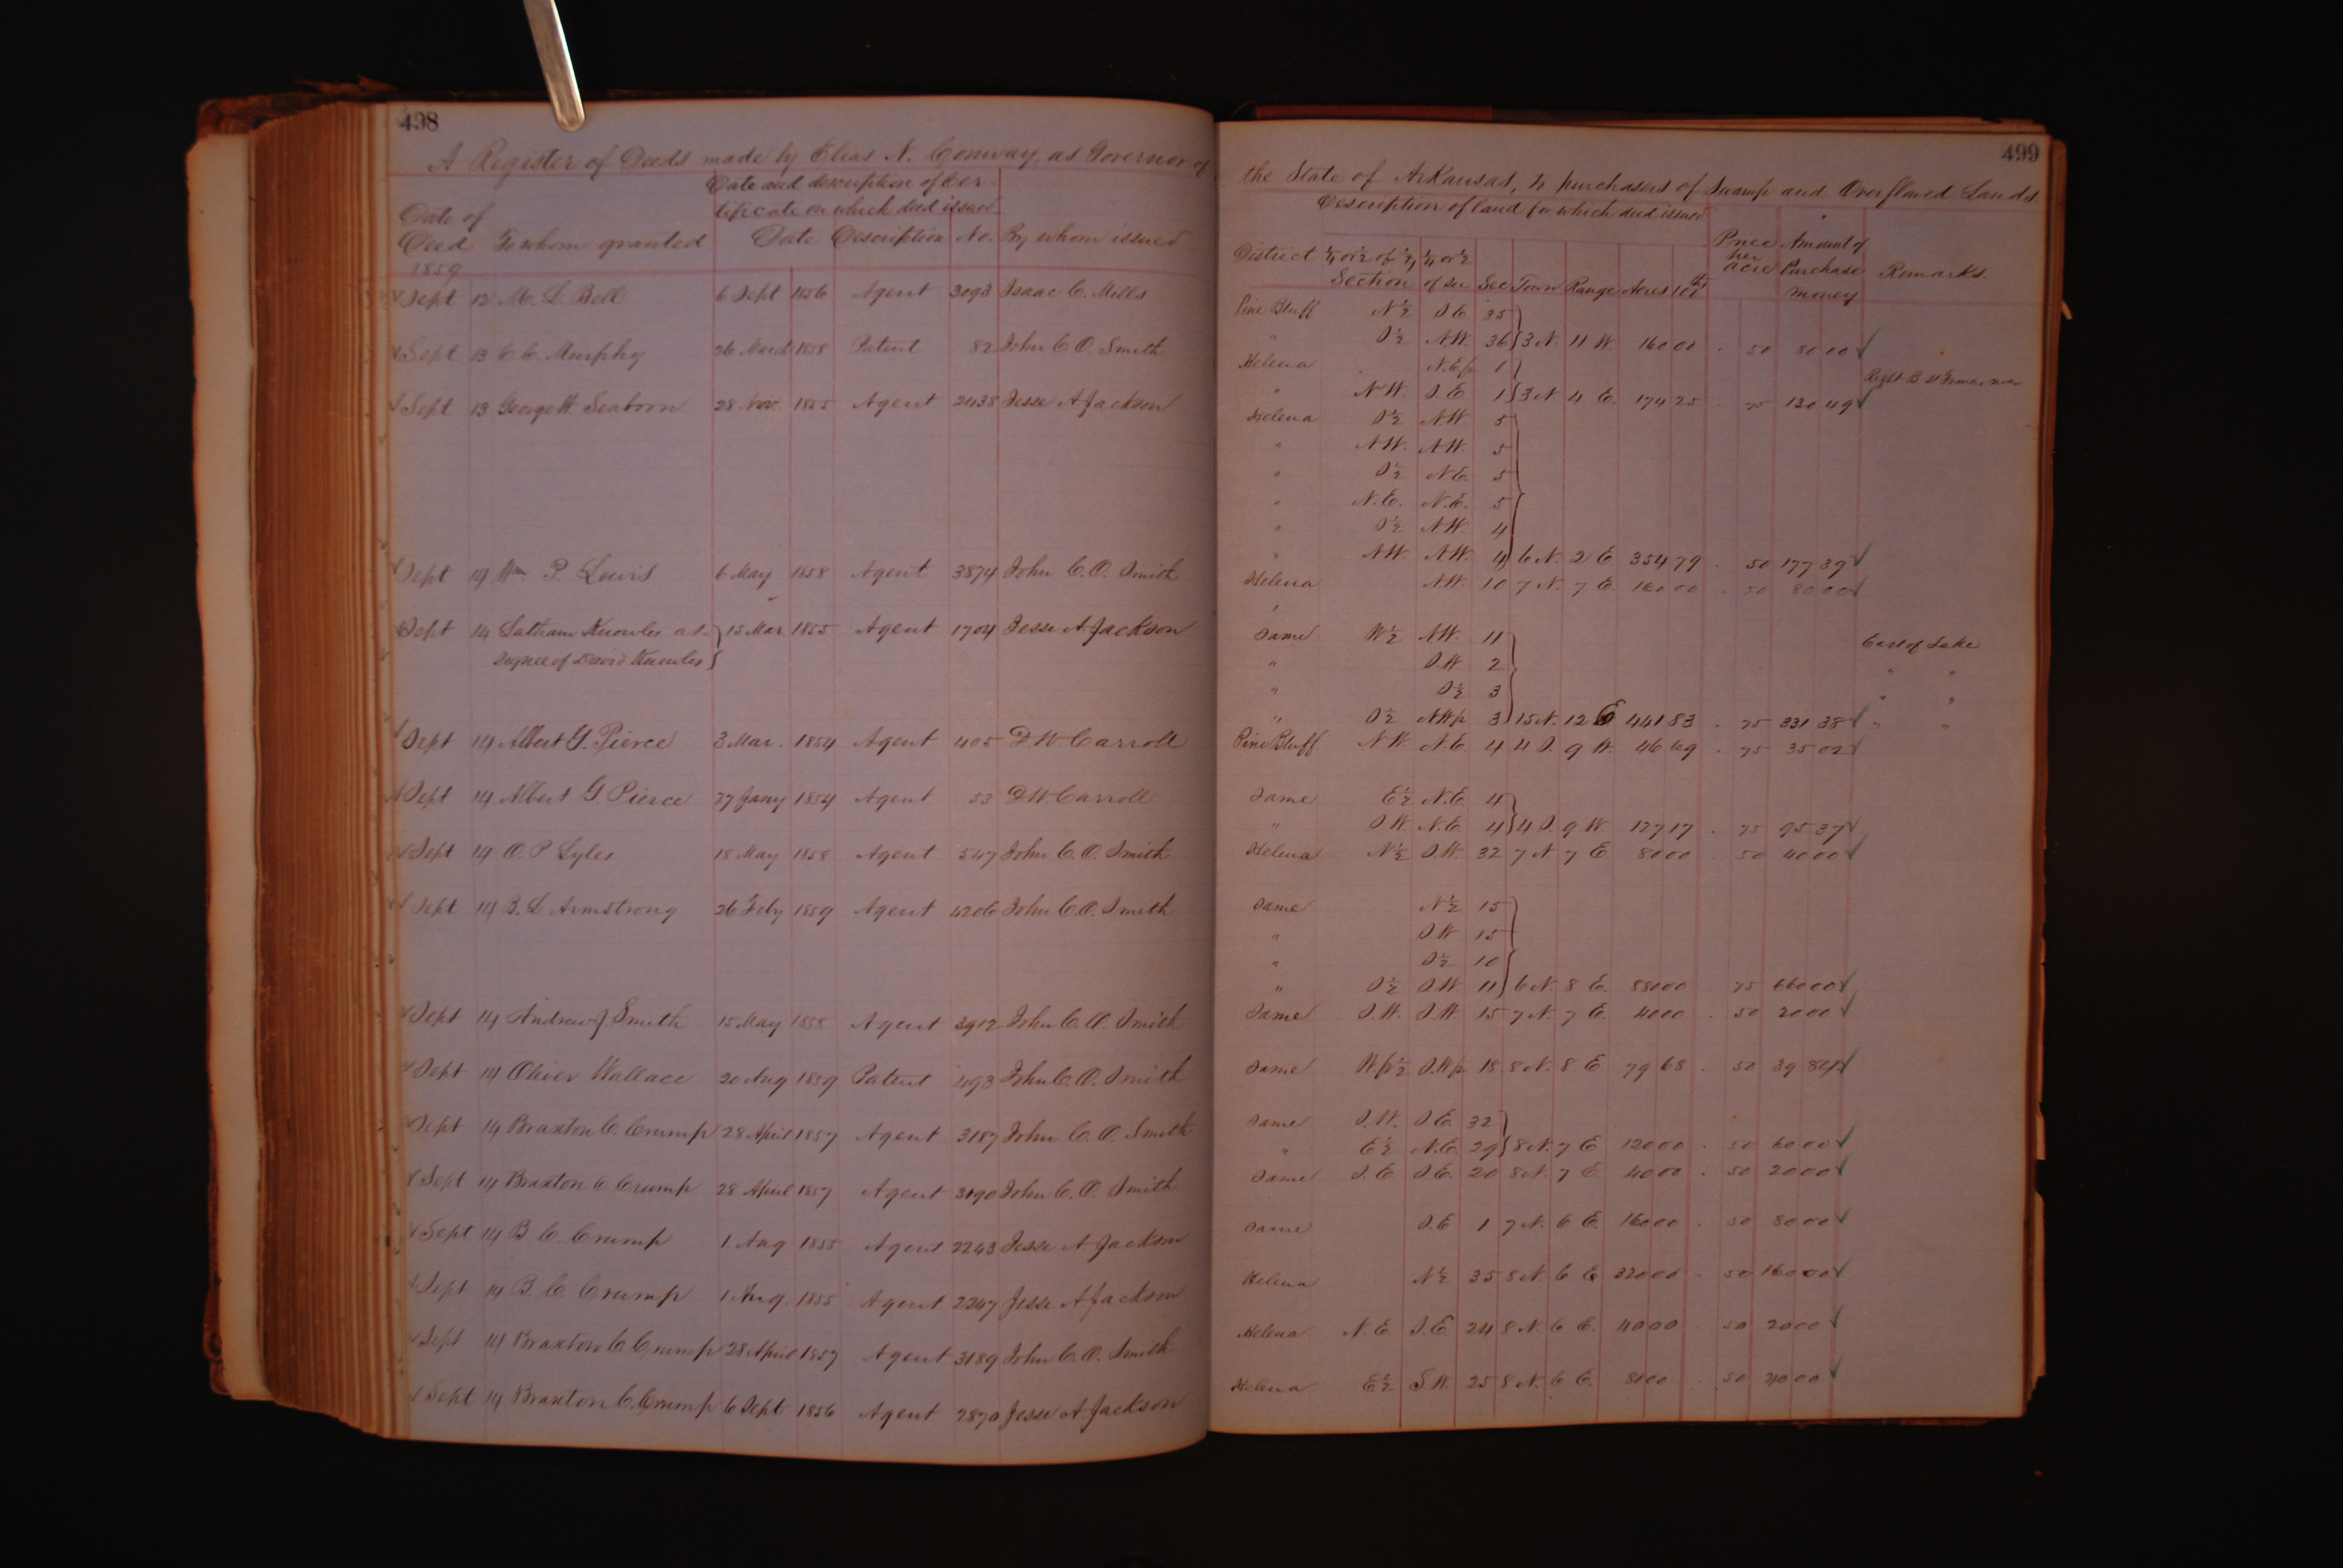 498
A Register of Deeds made by Elias N. Conway, as Governor of
Date and description of Cer
tificate on which deed issued
Date of
Deed To whom granted Date Description No. By whom issued
1859
Sept 12 M. L. Bell 6 Sept 1856 Agent 3093 Isaac C. Mills
Sept 13 C. C. Murphy 26 March 1858 Patent 82 John C. O. Smith
Sept 13 George W. Seaborn 28 Nov. 1855 Agent 2438 Jesse A Jackson
Sept 14 Wm. P. Lewis 6 May 1858 Agent 3874 John C. O. Smith
Sept 14 Latham Knowles as- } 15 Mar 1855 Agent 1704 Jesse A Jackson
signee of David Knowles }
Sept 14 Albert G. Pierce 3 Mar. 1854 Agent 405 D. W. Carroll
Sept 14 Albert G Pierce 27 Jany 1854 Agent 53 D. W. Carroll
Sept 14 O. P Lyles 18 May 1858 Agent 547 John C. O. Smith
Sept 14 B. L Armstrong 26 Feby 1859 Agent 4206 John C. O. Smith
Sept 14 Andrew J Smith 15 May 1858 Agent 3912 John C. O. Smith
Sept 14 Oliver Wallace 20 Aug 1859 Patent 493 John C. O. Smith
Sept 14 Braxton C. Crump 28 April 1857 Agent 3187 John C. O. Smith
Sept 14 Braxton C Crump 28 April 1857 Agent 3190 John C. O. Smith
Sept 14 B C. Crump 1 Aug 1855 Agent 2243 Jesse A Jackson
Sept 14 B. C. Crump 1 Aug. 1855 Agent 2247 Jesse A Jackson
Sept 14 Braxton C. Crump 28 April 1857 Agent 3189 John C. O. Smith
Sept 14 Braxton C. Crump 6 Sept 1856 Agent 2870 Jesse A. Jackson
499
the State of Arkansas, to purchasers of Swamp and Overflowed Lands
Description of land for which deed issued
District ¼ or ½ of ¼ ¼ or ½ Price Amount of
Section of Sec Sec Town Range Acres 100ths per acre Purchase money Remarks
Pine Bluff N½ S.E. 35 }
" S½ N.W. 36 } 3 N. 11 W. 160 00 . 50 80 00 ✓
Helena N.E.fr 1 }
" N.W. S.E. 1 } 3 N 4 E. 174 25 . 75 130 49 ✓
Helena S½ N.W. 5 }
" N.W. N.W. 5
" S½ N.E. 5
" N.E. N.E. 5
" S½ N.W. 4
" N.W. N.W. 4 } 6 N. 2 E 354 79 . 50 177 39 ✓
Helena N.W. 10 7 N. 7 E. 160 00 . 50 80 00 ✓
Same W½ N.W. 11 } East of Lake
" S.W. 2 " "
" S½ 3 " "
" S½ N.W.fr 3 } 15 N. 12 E 441 83 . 75 331 38 ✓ " "
Pine Bluff N.W. N.E. 4 4 S. 9 W. 46 69 . 75 35 02 ✓
Same E½ N.E. 4 }
" S.W. N.E. 4 } 4 S. 9 W 127 17 . 75 95 37 ✓
Helena N½ S.W. 32 7 N. 7 E. 80 00 . 50 40 00 ✓
Same N½ 15 }
" S.W 15
" S½ 10
" S½ S.W. 11 } 6 N. 8 E. 880 00 . 75 660 00 ✓
Same S.W. S.W. 15 7 N. 7 E. 40 00 . 50 20 00 ✓
Same W.fr½ S.W.fr 18 8 N. 8 E 79 68 . 50 39 84 ✓
Same S.W. S.E. 32 }
" E½ N.E. 29 } 8 N. 7 E 120 00 . 50 60 00 ✓
Same S.E. S.E. 20 8 N. 7 E. 40 00 . 50 20 00 ✓
Same S.E 1 7 N. 6 E. 160 00 . 50 80 00 ✓
Helena N½ 35 8 N. 6 E 320 00 . 50 160 00 ✓
Helena N.E. S.E. 24 8 N. 6 E. 40 00 . 50 20 00 ✓
Helena E½ S.W. 25 8 N. 6 E. 80 00 . 50 40 00 ✓